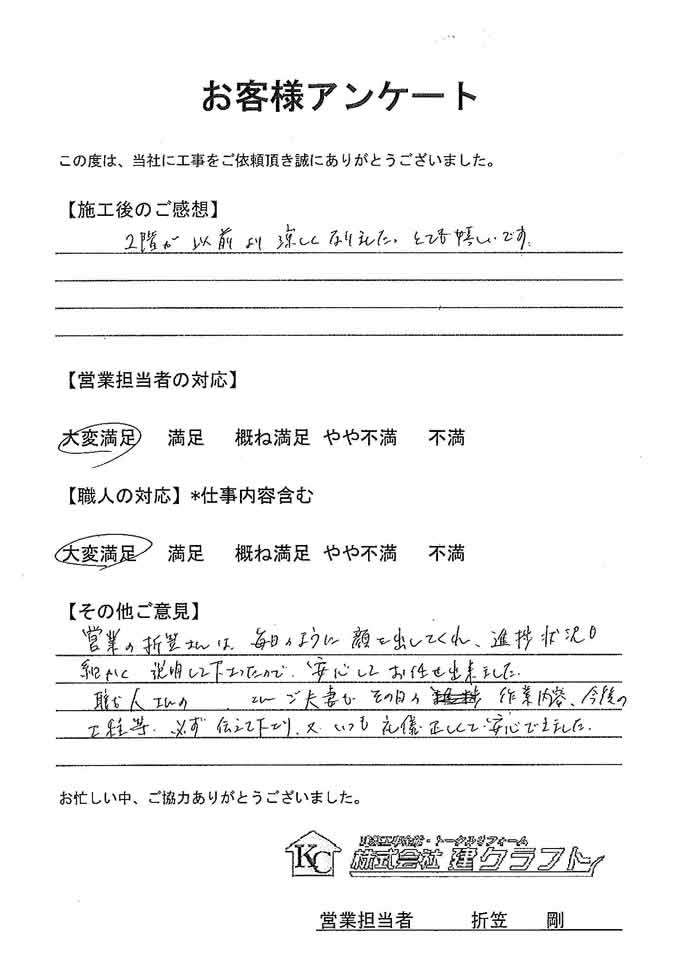 お客様アンケート
この度は、当社に工事をご依頼頂き誠にありがとうございました。
【施工後のご感想】
2階が以前より涼しくなりました。とても嬉しいです。
【営業担当者の対応】
大変満足 満足 概ね満足 やや不満 不満
【職人の対応】*仕事内容含む
大変満足 満足 概ね満足 やや不満 不満
【その他ご意見】
営業の折笠さんは、毎日のように顔を出してくれ、進捗状況も
細かく説明して下さったので、安心してお任せ出来ました。
職人さんの さんご夫妻も その日の 作業内容、今後の
工程等、必ず伝えて下さり、又、いつも礼儀正しくて安心できました。
お忙しい中、ご協力ありがとうございました。
KC
トータルリフォーム
株式会社 建クラフト
営業担当者 折笠 剛